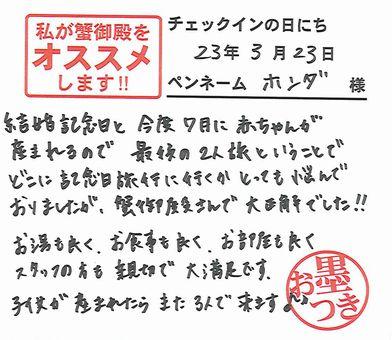 私が蟹御殿を
オススメ
します!!
チェックインの日にち
23年 3月23日
ペンネーム ホンダ 様
結婚記念日と 今度7月に赤ちゃんが
産まれるので 最後の2人旅ということで
どこに記念日旅行に行くか とっても悩んで
おりましたが、蟹御殿さんで大正解でした!!
お湯も良く、お食事も良く、お部屋も良く
スタッフの方も 親切で 大満足です。
子供が産まれたら また3人で来ます♪
お墨つき